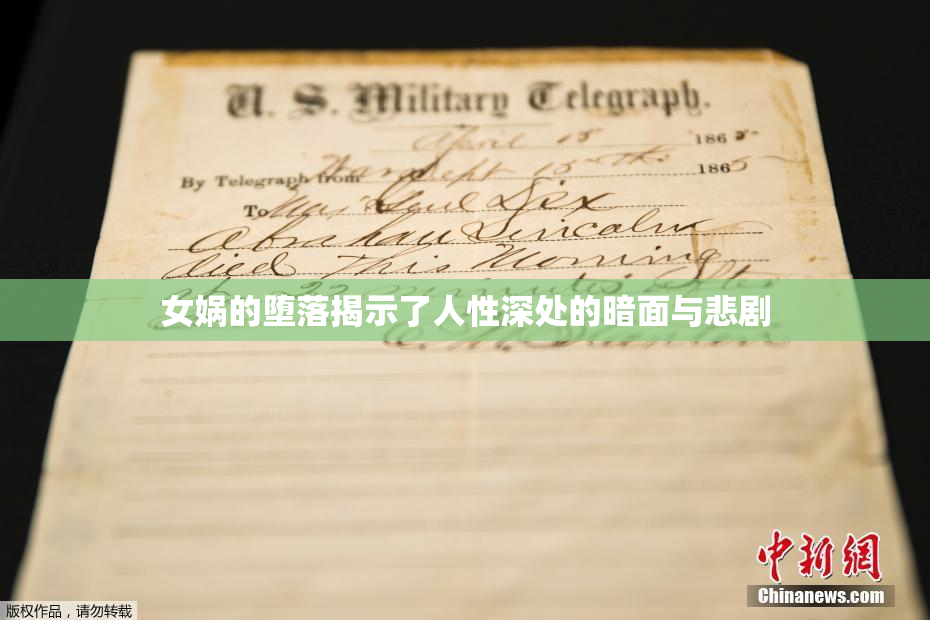 U. S. Military Telegraph.
April 15 1865
By Telegraph from War Dept 15th 1865
To Maj Genl Dix
Abraham Lincoln
died This Morning
at 22 minutes after
女娲的堕落揭示了人性深处的暗面与悲剧
E. M. Stanton
中新网
Chinanews.com
版权作品，请勿转载